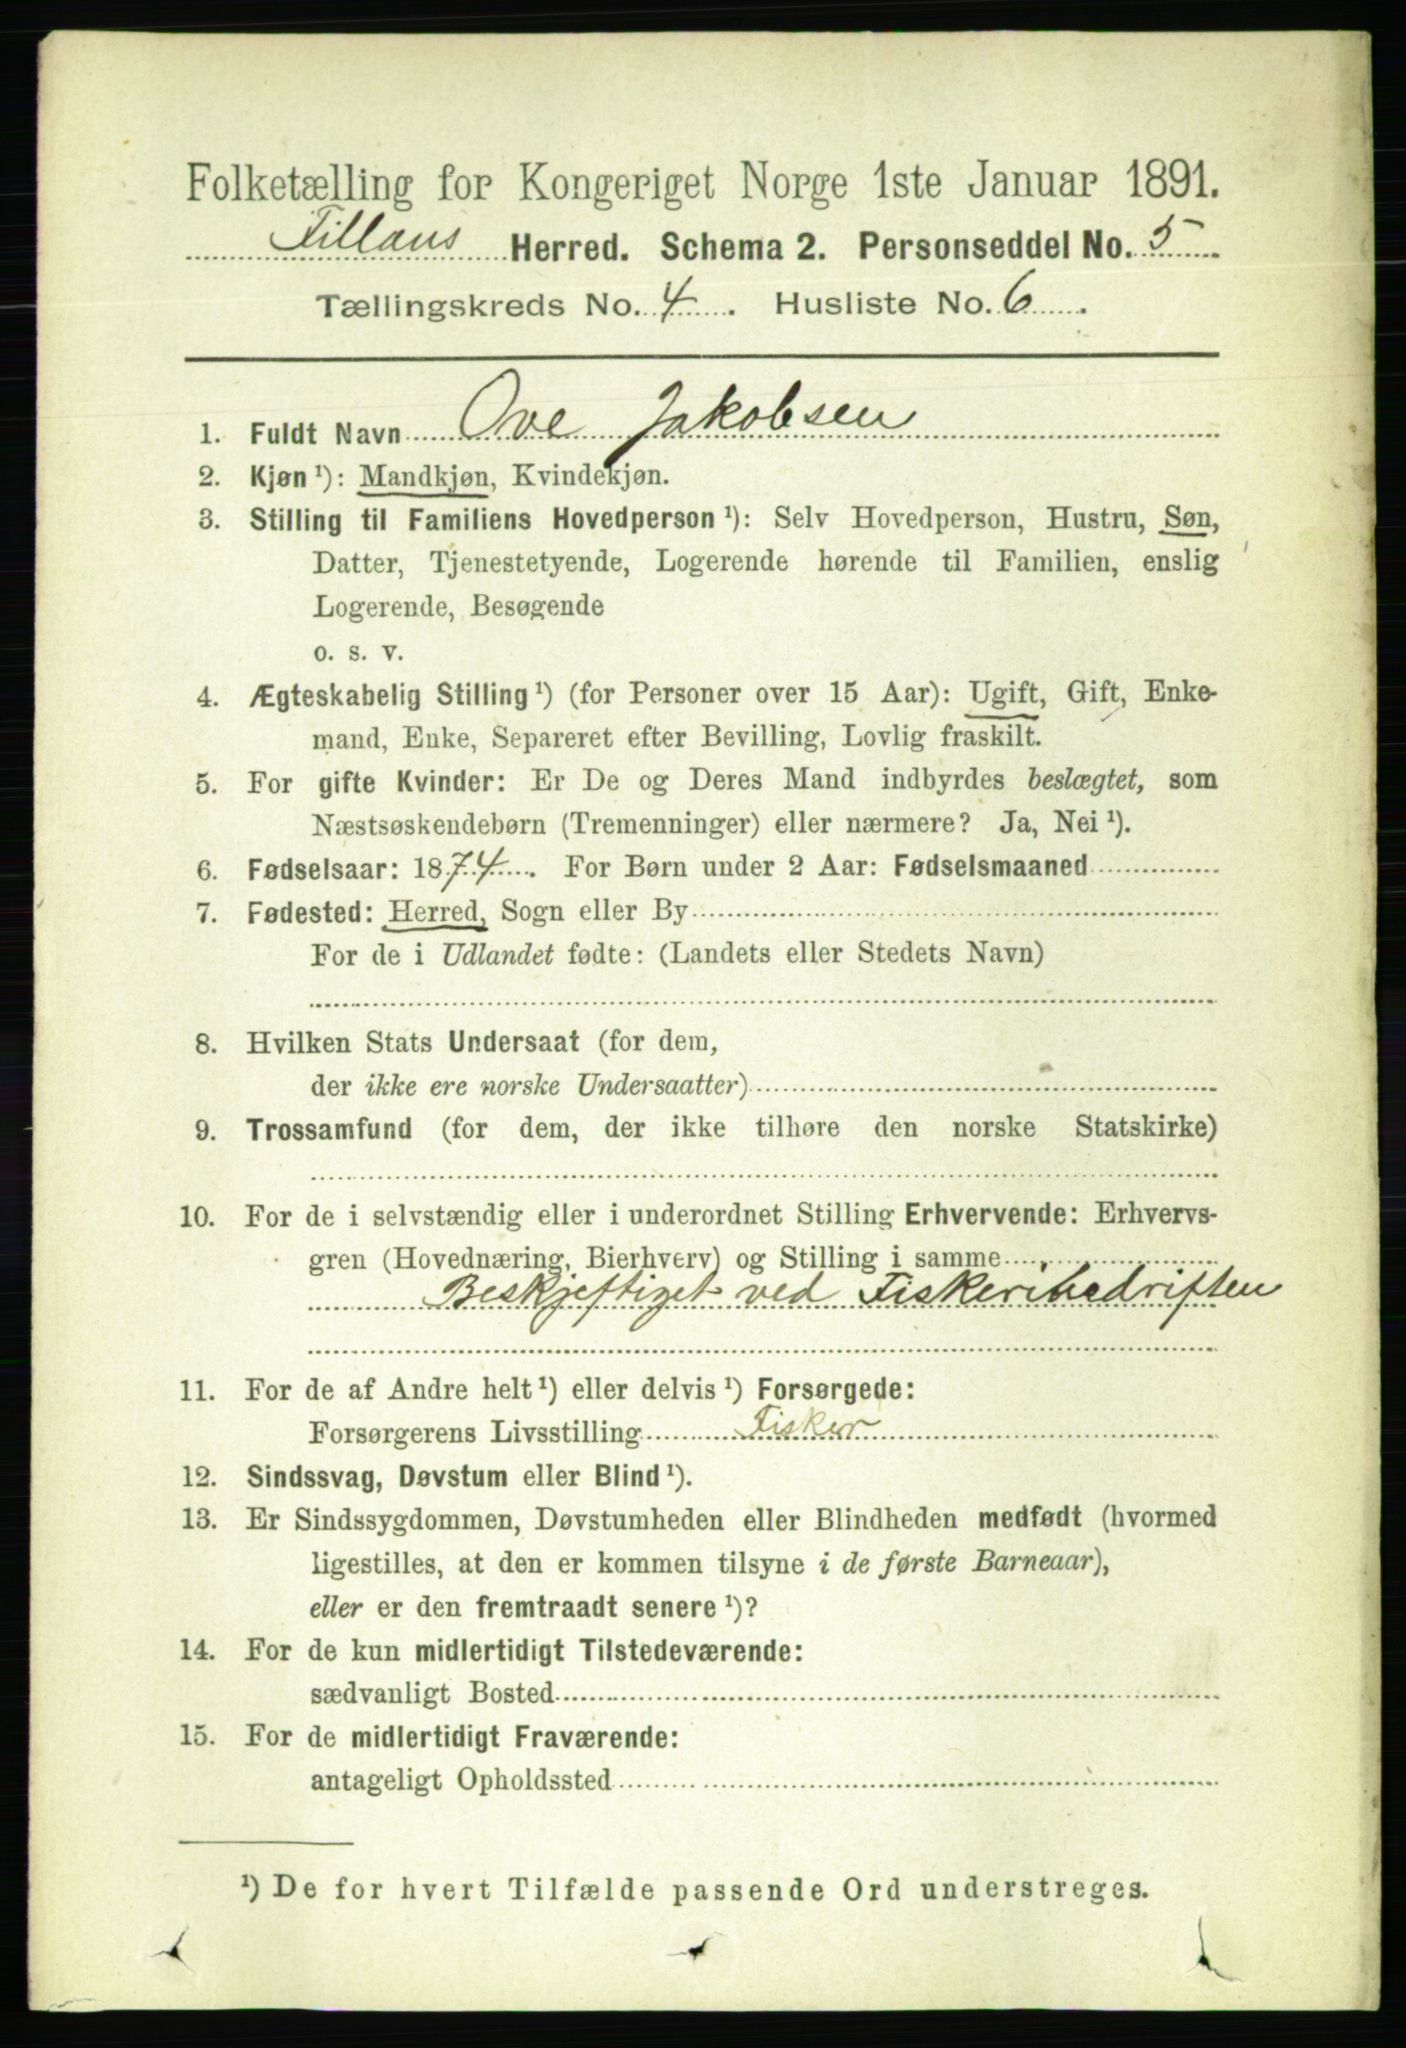 Folketælling for Kongeriget Norge 1ste Januar 1891.
Fillans Herred. Schema 2. Personseddel No. 5
Tællingskreds No. 4. Husliste No. 6.
1. Fuldt Navn Ove Jakobsen
2. Kjøn ¹): Mandkjøn, Kvindekjøn.
3. Stilling til Familiens Hovedperson ¹): Selv Hovedperson, Hustru, Søn,
Datter, Tjenestetyende, Logerende hørende til Familien, enslig
Logerende, Besøgende
o. s. v.
4. Ægteskabelig Stilling ¹) (for Personer over 15 Aar): Ugift, Gift, Enke-
mand, Enke, Separeret efter Bevilling, Lovlig fraskilt.
5. For gifte Kvinder: Er De og Deres Mand indbyrdes beslægtet, som
Næstsøskendebørn (Tremenninger) eller nærmere? Ja, Nei ¹).
6. Fødselsaar: 1874. For Børn under 2 Aar: Fødselsmaaned
7. Fødested: Herred, Sogn eller By
For de i Udlandet fødte: (Landets eller Stedets Navn)
8. Hvilken Stats Undersaat (for dem,
der ikke ere norske Undersaatter)
9. Trossamfund (for dem, der ikke tilhøre den norske Statskirke)
10. For de i selvstændig eller i underordnet Stilling Erhvervende: Erhvervs-
gren (Hovednæring, Bierhverv) og Stilling i samme
Beskjeftiget ved Fiskeribedriften
11. For de af Andre helt ¹) eller delvis ¹) Forsørgede:
Forsørgerens Livsstilling Fisker
12. Sindssvag, Døvstum eller Blind ¹).
13. Er Sindssygdommen, Døvstumheden eller Blindheden medfødt (hvormed
ligestilles, at den er kommen tilsyne i de første Barneaar),
eller er den fremtraadt senere ¹)?
14. For de kun midlertidigt Tilstedeværende:
sædvanligt Bosted
15. For de midlertidigt Fraværende:
antageligt Opholdssted
¹) De for hvert Tilfælde passende Ord understreges.